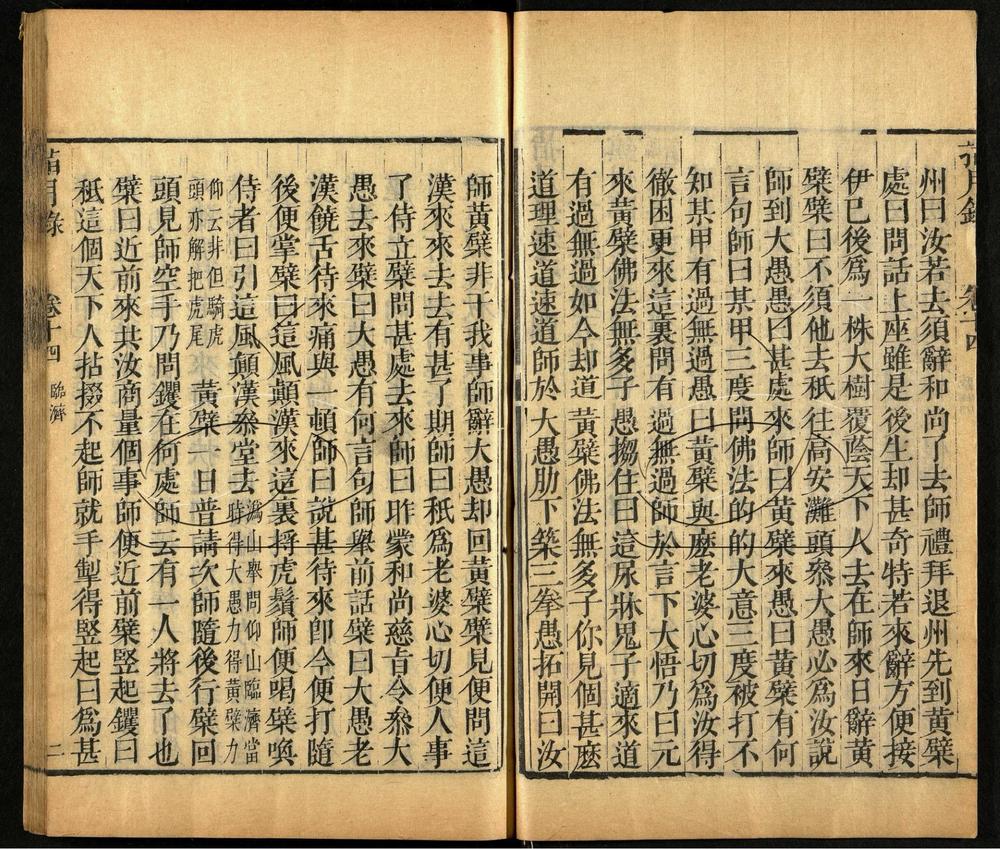 指月錄
卷十四
州曰汝若去須辭和尚了去師禮拜退州先到黃檗
處曰問話上座雖是後生却甚奇特若來辭方便接
伊已後爲一株大樹覆陰天下人去在師來日辭黃
檗檗曰不須他去秖往高安灘頭叅大愚必爲汝說
師到大愚愚曰甚處來師曰黃檗來愚曰黃檗有何
言句師曰某甲三度問佛法的的大意三度被打不
知某甲有過無過愚曰黃檗與麽老婆心切爲汝得
徹困更來這裏問有過無過師於言下大悟乃曰元
來黃檗佛法無多子愚搊住曰這尿牀鬼子適來道
有過無過如今却道黃檗佛法無多子你見個甚麽
道理速道速道師於大愚肋下築三拳愚拓開曰汝
師黃檗非干我事師辭大愚却回黃檗檗見便問這
漢來來去去有甚了期師曰秖爲老婆心切便人事
了侍立檗問甚處去來師曰昨蒙和尚慈旨令叅大
愚去來檗曰大愚有何言句師舉前話檗曰大愚老
漢饒舌待來痛與一頓師曰說甚待來卽今便打隨
後便掌檗曰這風顛漢來這裏捋虎鬚師便喝檗喚
侍者曰引這風顛漢叅堂去
溈山舉問仰山臨濟當
時得大愚力得黃檗力
仰云非但騎虎
頭亦解把虎尾
黃檗一日普請次師隨後行檗回
頭見師空手乃問钁在何處師云有一人將去了也
檗曰近前來共汝商量個事師便近前檗竪起钁曰
秖這個天下人拈掇不起師就手掣得竪起曰爲甚
指月錄
卷十四
臨濟
二